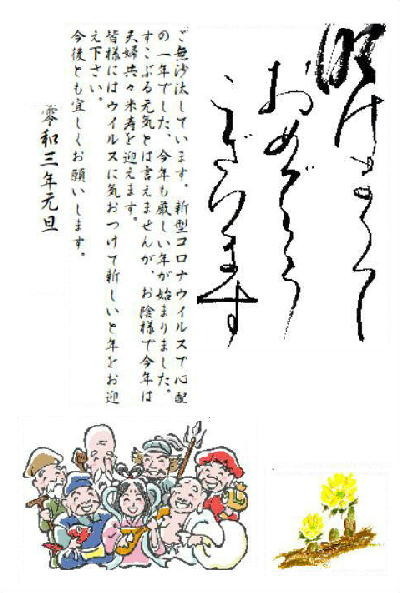 明けまして
おめでとう
ございます
ご無沙汰しています。新型コロナウイルスで心配
の一年でした。今年も厳しい年が始まりました。
すこぶる元気とは言えませんが、お陰様で今年は
夫婦共々米寿を迎えます。
皆様にはウイルスに気おつけて新しいと年をお迎
え下さい。
今後とも宜しくお願いします。
零和三年元旦